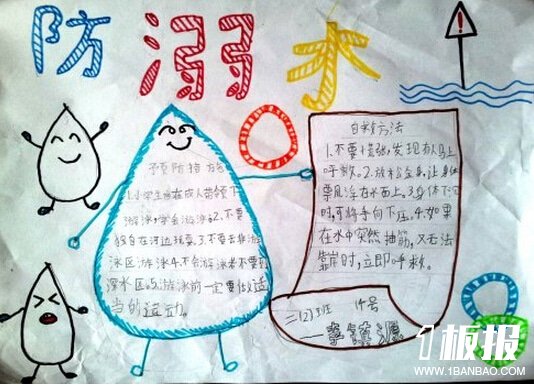 防溺水
预防措施
1.小学生应在成人带领下
游泳,学会游泳。2.不要
独自在河边玩耍。3.不要去非游
泳区游泳。4.不会游泳者不要到
深水区。5.游泳前一定要做适
当的运动。
自救方法
1.不要慌张,发现有人马上
呼救。2.放松全身,让身体
飘浮在水面上。3.身体下沉
时,可将手向下压。4.如果
在水中突然抽筋,又无法
靠岸时,立即呼救。
二(2)班 号
李
1板报
WWW.1BANBAO.COM